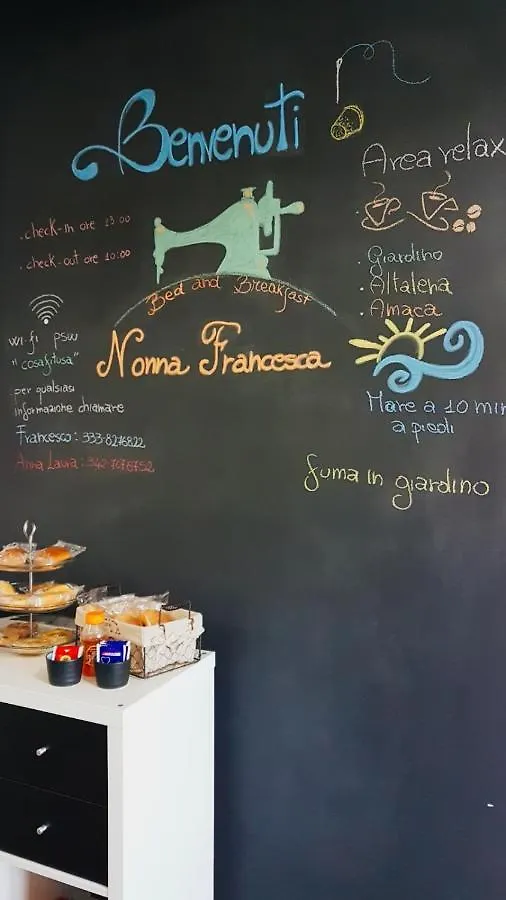 Benvenuti
. check-in ore 13:00
. check-out ore 10:00
Bed and Breakfast
Nonna Francesca
wi-fi psw
"cosafitusa"
per qualsiasi
informazione chiamare
Francesco: 333-8276822
Anna Laura: 342-7076752
Area relax
. Giardino
. Altalena
. Amaca
Mare a 10 min
a piedi
fuma in giardino